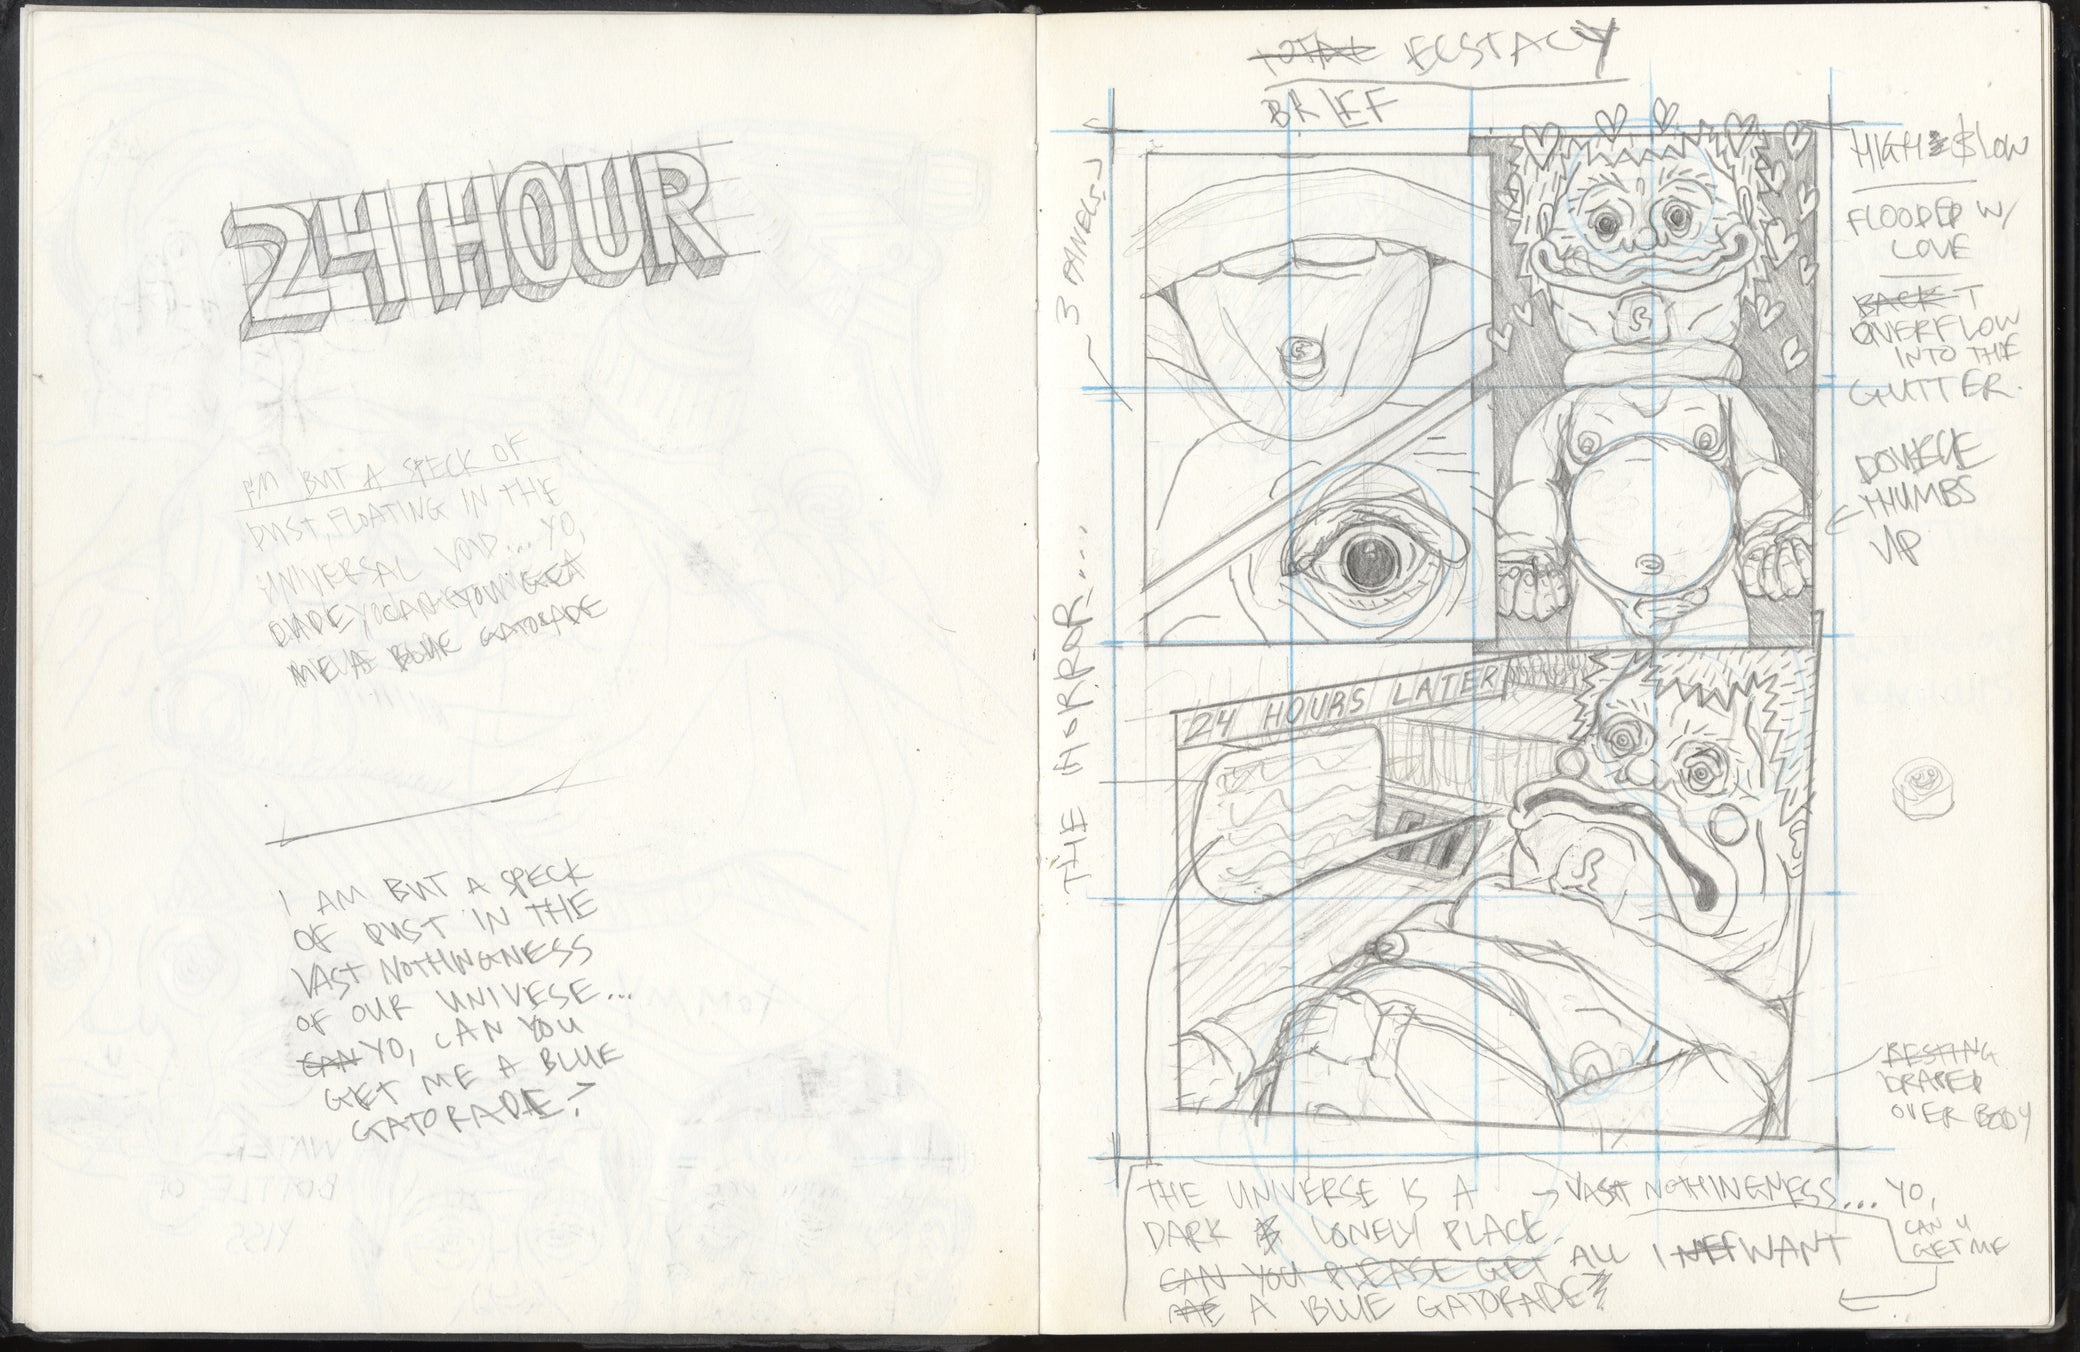 24 HOUR
I'M BUT A SPECK OF
DUST, FLOATING IN THE
UNIVERSAL VOID... YO,
DUDE YO CAN YOU GET
ME A BLUE GATORADE
I AM BUT A SPECK
OF DUST IN THE
VAST NOTHINGNESS
OF OUR UNIVESE...
CAN YO, CAN YOU
GET ME A BLUE
GATORADE?
TOTAL ECSTACY
BRIEF
3 PANELS
THE HORROR....
HIGH & $LOW
FLOODED W/
LOVE
BACK T
OVERFLOW
INTO THE
GUTTER.
DOUBLE
THUMBS
UP
S
24 HOURS LATER
S
RESTING
DRAPED
OVER BODY
THE UNIVERSE IS A → VAST NOTHINGNESS... YO,
CAN U
GET ME
DARK & LONELY PLACE.
CAN YOU PLEASE GET ALL I WANT
ME A BLUE GATORADE?